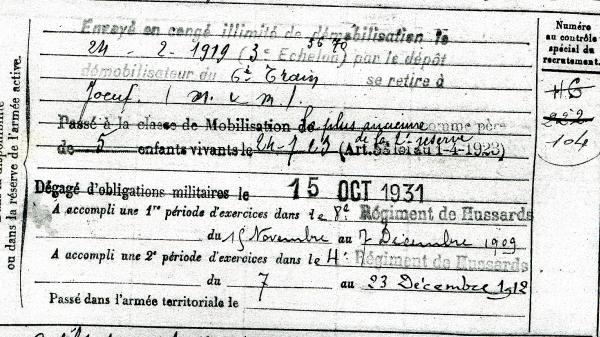 ou dans la réserve de l'armée active.
Envoyé en congé illimité de démobilisation le
24 - 2 - 1919 (3e Echelon) par le dépôt
démobilisateur du 6e Train se retire à
Joeuf. (M. & M.).
Passé à la classe de Mobilisation de la plus ancienne comme père
de la 2e réserve
de 5 enfants vivants le 24-7-23 (Art. 58 loi du 1-4-1923)
Dégagé d'obligations militaires le 15 OCT 1931
A accompli une 1re période d'exercices dans le 8e Régiment de Hussards
du 15 Novembre au 7 Décembre 1909
A accompli une 2e période d'exercices dans le 4e Régiment de Hussards
du 7 au 23 Décembre 1912
Passé dans l'armée territoriale le
Numéro
au contrôle
spécial du
recrutement.
222
104